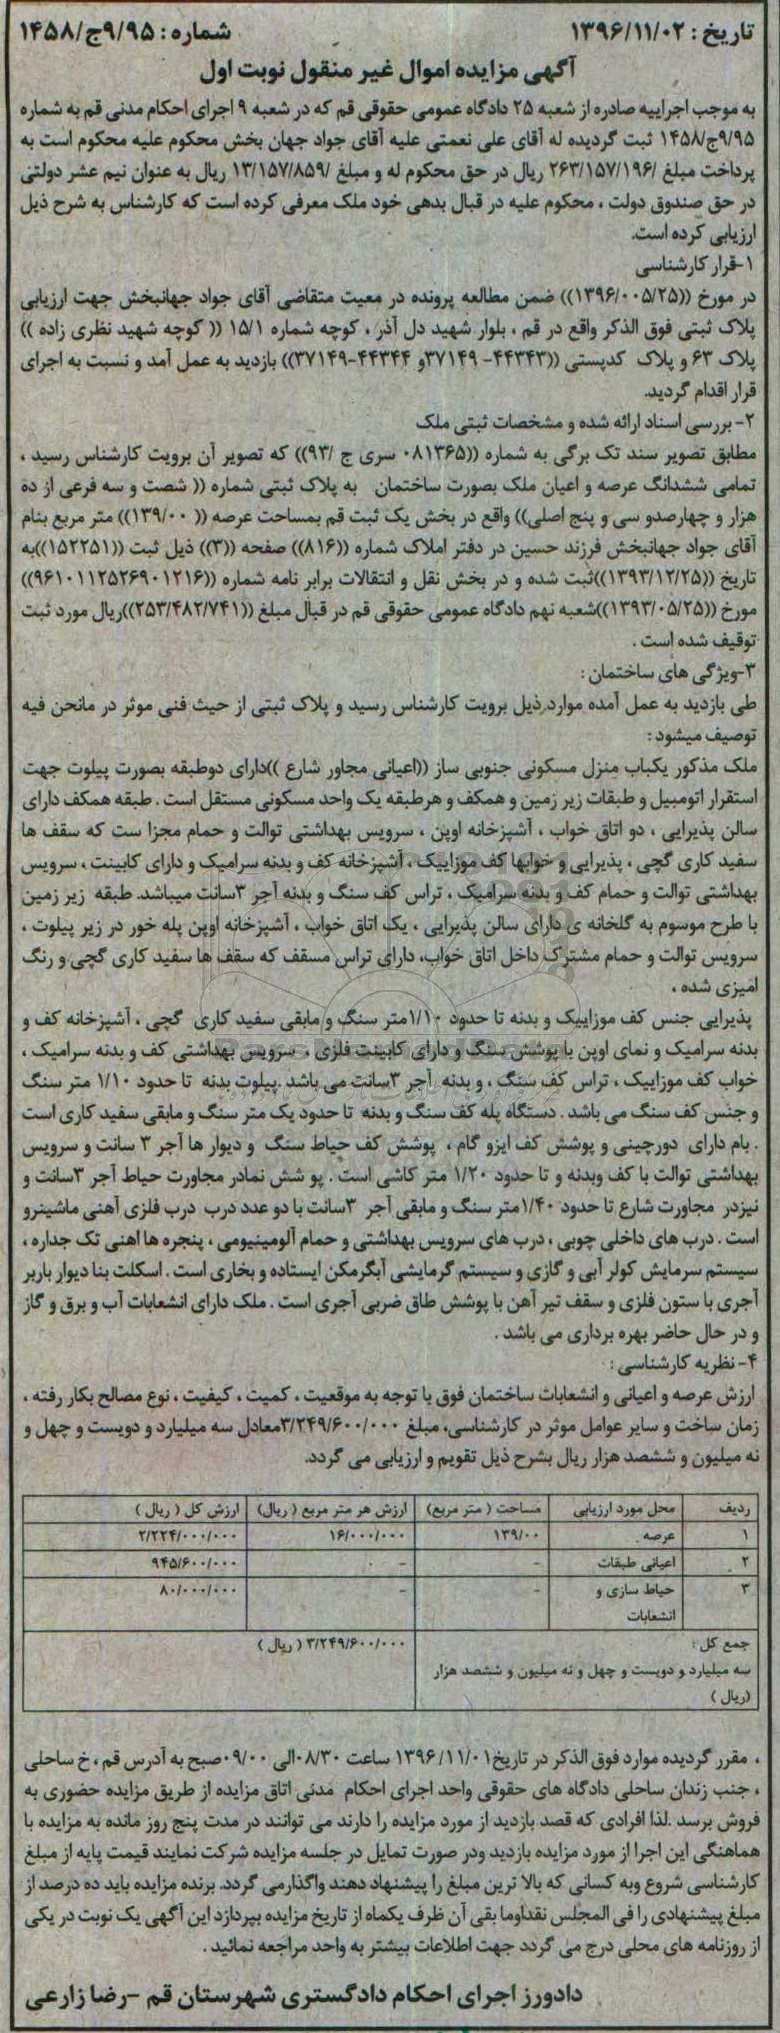 تاریخ : ۱۳۹۶/۱۱/۰۲ شماره : ۹/۹۵ج/۱۴۵۸
آگهی مزایده اموال غیر منقول نوبت اول
به موجب اجراییه صادره از شعبه ۲۵ دادگاه عمومی حقوقی قم که در شعبه ۹ اجرای احکام مدنی قم به شماره
۹/۹۵ج/۱۴۵۸ ثبت گردیده له آقای علی نعمتی علیه آقای جواد جهان بخش محکوم علیه محکوم است به
پرداخت مبلغ /۲۶۳/۱۵۷/۱۹۶ ریال در حق محکوم له و مبلغ /۱۳/۱۵۷/۸۵۹ ریال به عنوان نیم عشر دولتی
در حق صندوق دولت ، محکوم علیه در قبال بدهی خود ملک معرفی کرده است که کارشناس به شرح ذیل
ارزیابی کرده است.
۱-قرار کارشناسی
در مورخ ((۱۳۹۶/۰۰۵/۲۵)) ضمن مطالعه پرونده در معیت متقاضی آقای جواد جهانبخش جهت ارزیابی
پلاک ثبتی فوق الذکر واقع در قم ، بلوار شهید دل آذر ، کوچه شماره ۱۵/۱ (( کوچه شهید نظری زاده ))
پلاک ۶۳ و پلاک کدپستی ((۴۴۳۴۳- ۳۷۱۴۹و ۴۴۳۴۴-۳۷۱۴۹)) بازدید به عمل آمد و نسبت به اجرای
قرار اقدام گردید.
۲- بررسی اسناد ارائه شده و مشخصات ثبتی ملک
مطابق تصویر سند تک برگی به شماره ((۰۸۱۳۶۵ سری ج /۹۳)) که تصویر آن برویت کارشناس رسید ،
تمامی ششدانگ عرصه و اعیان ملک بصورت ساختمان به پلاک ثبتی شماره (( شصت و سه فرعی از ده
هزار و چهارصدو سی و پنج اصلی)) واقع در بخش یک ثبت قم بمساحت عرصه (( ۱۳۹/۰۰)) متر مربع بنام
آقای جواد جهانبخش فرزند حسین در دفتر املاک شماره ((۸۱۶)) صفحه ((۳)) ذیل ثبت ((۱۵۲۲۵۱))به
تاریخ ((۱۳۹۳/۱۲/۲۵))ثبت شده و در بخش نقل و انتقالات برابر نامه شماره ((۹۶۱۰۱۱۲۵۲۶۹۰۱۲۱۶))
مورخ ((۱۳۹۳/۰۵/۲۵))شعبه نهم دادگاه عمومی حقوقی قم در قبال مبلغ ((۲۵۳/۴۸۲/۷۴۱))ریال مورد ثبت
توقیف شده است .
۳-ویژگی های ساختمان :
طی بازدید به عمل آمده موارد ذیل برویت کارشناس رسید و پلاک ثبتی از حیث فنی موثر در مانحن فیه
توصیف میشود :
ملک مذکور یکباب منزل مسکونی جنوبی ساز ((اعیانی مجاور شارع ))دارای دوطبقه بصورت پیلوت جهت
استقرار اتومبیل و طبقات زیر زمین و همکف و هرطبقه یک واحد مسکونی مستقل است . طبقه همکف دارای
سالن پذیرایی ، دو اتاق خواب ، آشپزخانه اوپن ، سرویس بهداشتی توالت و حمام مجزا ست که سقف ها
سفید کاری گچی ، پذیرایی و خوابها کف موزاییک ، آشپزخانه کف و بدنه سرامیک و دارای کابینت ، سرویس
بهداشتی توالت و حمام کف و بدنه سرامیک ، تراس کف سنگ و بدنه آجر ۳سانت میباشد. طبقه زیر زمین
با طرح موسوم به گلخانه ی دارای سالن پذیرایی ، یک اتاق خواب ، آشپزخانه اوپن پله خور در زیر پیلوت ،
سرویس توالت و حمام مشترک داخل اتاق خواب، دارای تراس مسقف که سقف ها سفید کاری گچی و رنگ
امیزی شده ،
پذیرایی جنس کف موزاییک و بدنه تا حدود ۱/۱۰متر سنگ و مابقی سفید کاری گچی ، آشپزخانه کف و
بدنه سرامیک و نمای اوپن با پوشش سنگ و دارای کابینت فلزی ، سرویس بهداشتی کف و بدنه سرامیک ،
خواب کف موزاییک ، تراس کف سنگ ، و بدنه آجر ۳سانت می باشد .پیلوت بدنه تا حدود ۱/۱۰ متر سنگ
و جنس کف سنگ می باشد . دستگاه پله کف سنگ و بدنه تا حدود یک متر سنگ و مابقی سفید کاری است
. بام دارای دورچینی و پوشش کف ایزو گام ، پوشش کف حیاط سنگ و دیوار ها آجر ۳ سانت و سرویس
بهداشتی توالت با کف وبدنه و تا حدود ۱/۲۰ متر کاشی است . پو شش نمادر مجاورت حیاط آجر ۳سانت و
نیزدر مجاورت شارع تا حدود ۱/۴۰متر سنگ و مابقی آجر ۳سانت با دو عدد درب درب فلزی آهنی ماشینرو
است . درب های داخلی چوبی ، درب های سرویس بهداشتی و حمام آلومینیومی ، پنجره ها اهنی تک جداره ،
سیستم سرمایش کولر آبی و گازی و سیستم گرمایشی آبگرمکن ایستاده و بخاری است . اسکلت بنا دیوار باربر
آجری با ستون فلزی و سقف تیر آهن با پوشش طاق ضربی آجری است . ملک دارای انشعابات آب و برق و گاز
و در حال حاضر بهره برداری می باشد .
۴- نظریه کارشناسی :
ارزش عرصه و اعیانی و انشعابات ساختمان فوق با توجه به موقعیت ، کمیت ، کیفیت ، نوع مصالح بکار رفته ،
زمان ساخت و سایر عوامل موثر در کارشناسی، مبلغ ۳/۲۴۹/۶۰۰/۰۰۰معادل سه میلیارد و دویست و چهل و
نه میلیون و ششصد هزار ریال بشرح ذیل تقویم و ارزیابی می گردد.
ردیف محل مورد ارزیابی مساحت ( متر مربع) ارزش هر متر مربع ( ریال) ارزش کل ( ریال )
۱ عرصه ۱۳۹/۰۰ ۱۶/۰۰۰/۰۰۰ ۲/۲۲۴/۰۰۰/۰۰۰
۲ اعیانی طبقات - - ۹۴۵/۶۰۰/۰۰۰
۳ حیاط سازی و - - ۸۰/۰۰۰/۰۰۰
انشعابات
جمع کل : ۳/۲۴۹/۶۰۰/۰۰۰ ( ریال )
سه میلیارد و دویست و چهل و نه میلیون و ششصد هزار
(ریال )
، مقرر گردیده موارد فوق الذکر در تاریخ۱۳۹۶/۱۱/۰۱ ساعت ۰۸/۳۰الی ۰۹/۰۰صبح به آدرس قم ، خ ساحلی
، جنب زندان ساحلی دادگاه های حقوقی واحد اجرای احکام مدنی اتاق مزایده از طریق مزایده حضوری به
فروش برسد .لذا افرادی که قصد بازدید از مورد مزایده را دارند می توانند در مدت پنج روز مانده به مزایده با
هماهنگی این اجرا از مورد مزایده بازدید ودر صورت تمایل در جلسه مزایده شرکت نمایند قیمت پایه از مبلغ
کارشناسی شروع وبه کسانی که بالا ترین مبلغ را پیشنهاد دهند واگذارمی گردد. برنده مزایده باید ده درصد از
مبلغ پیشنهادی را فی المجلس نقداوما بقی آن ظرف یکماه از تاریخ مزایده بپردازد این آگهی یک نوبت در یکی
از روزنامه های محلی درج می گردد جهت اطلاعات بیشتر به واحد مراجعه نمائید .
دادورز اجرای احکام دادگستری شهرستان قم -رضا زارعی